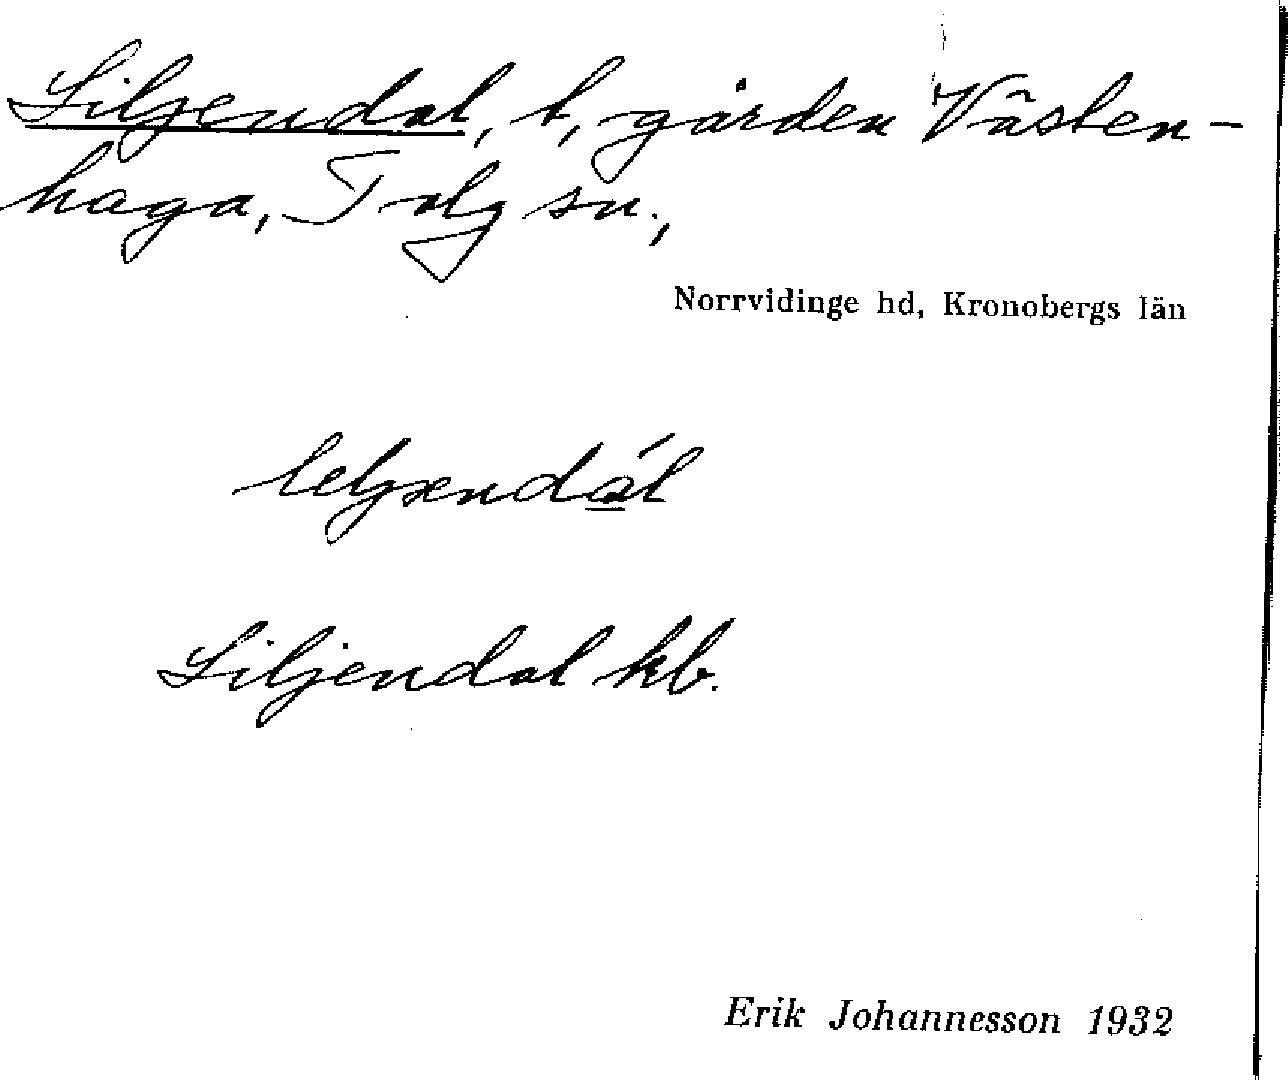 Liljendal, t, gården Västen-
haga, Tolg sn.,
Norrvidinge hd, Kronobergs län
leljendál
Liljendal kb.
Erik Johannesson 1932